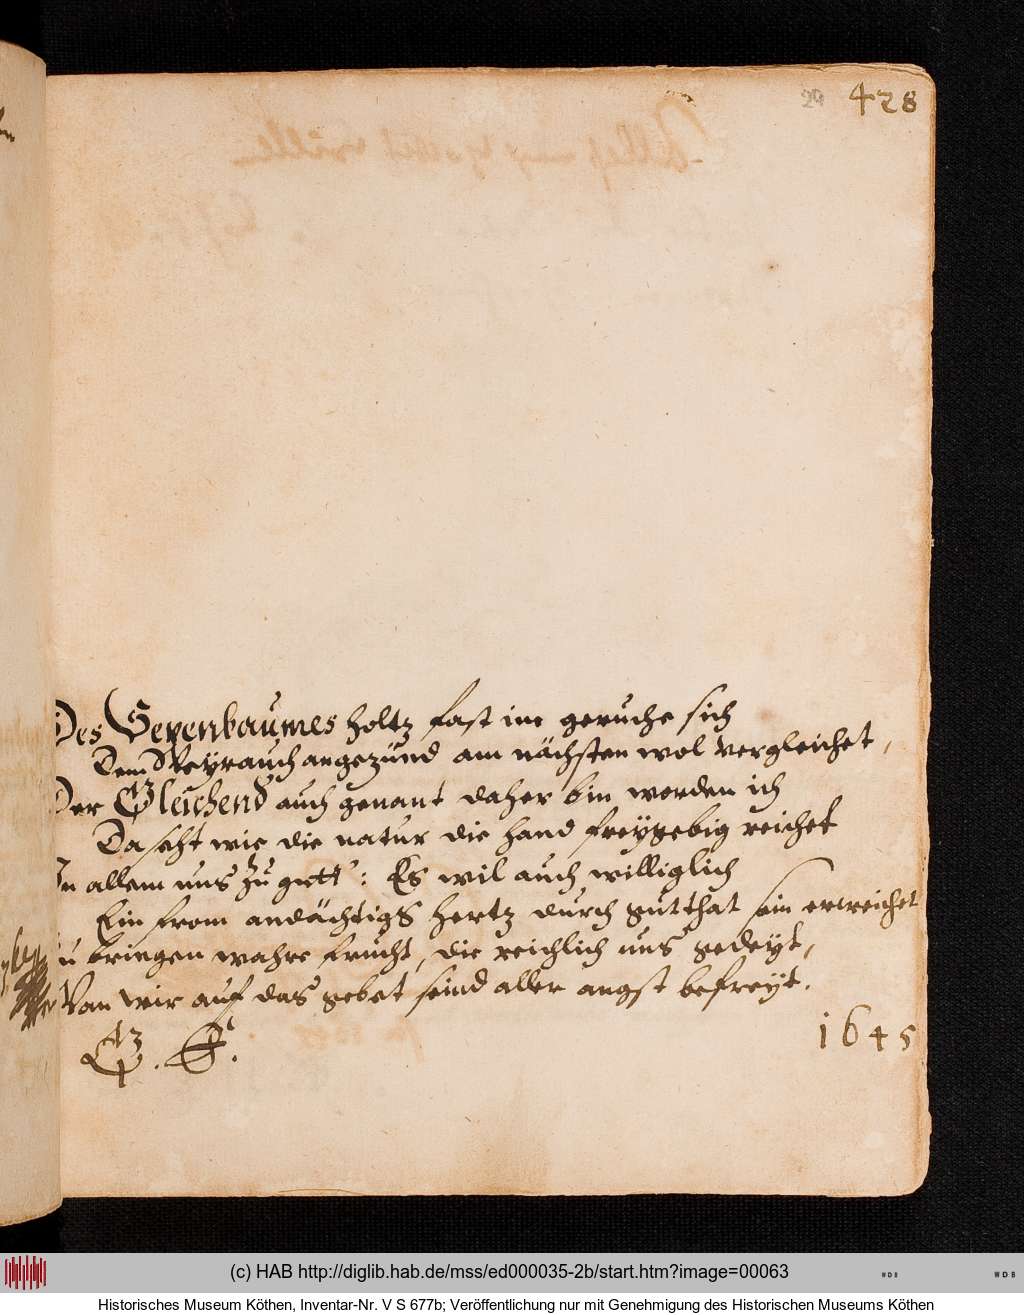 29 428
Des Sevenbaumes holtz fast im geruche sich
Dem Weyrauch angezünd am nächsten wol vergleichet,
Der Gleichend auch genant daher bin worden ich
Da seht wie die natur die hand freygebig reichet
In allem uns zu gutt: Es wil auch williglich
Ein from andächtigs hertz durch gutthat sein erreichet
Zu bringen wahre frucht, die reichlich uns gedeyt,
Wan wir auf das gebet seind aller angst befreyt.
1645
(c) HAB http://diglib.hab.de/mss/ed000035-2b/start.htm?image=00063
WDB
WDB
Historisches Museum Köthen, Inventar-Nr. V S 677b; Veröffentlichung nur mit Genehmigung des Historischen Museums Köthen